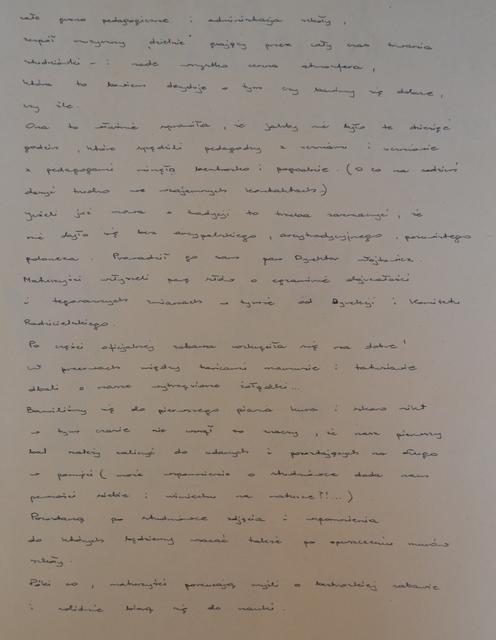 całe grono pedagogiczne i administracja szkoły,
zespół muzyczny "dzielnie" grający przez cały czas trwania
studniówki - i nade wszystko cenna atmosfera,
która to bowiem decyduje o tym czy bawimy się dobrze,
czy źle.
Ona to właśnie sprawiła, że jakby nie było te dziesięć
godzin, które spędzili pedagodzy z uczniami i uczniowie
z pedagogami minęło beztrosko i pogodnie. (O co na codzień
dosyć trudno we wzajemnych kontaktach.)
Jeżeli już mowa o tradycji to trzeba zaznaczyć, że
nie było się bez arcypolskiego, arcytradycyjnego, powiewnego
poloneza. Prowadził go sam pan Dyrektor
Maturzyści usłyszeli parę słów o egzaminie dojrzałości
i tegorocznych zmianach w tymże od Dyrekcji i Komitetu
Rodzicielskiego.
Po części oficjalnej zabawa rozkręciła się na dobre!
W przerwach między tańcami mamusie i tatusiowie
dbali o nasze wytrzęsione żołądki...
Bawiliśmy się do pierwszego piania kura i skoro nikt
w tym czasie nie usnął to znaczy, że nasz pierwszy
bal należy zaliczyć do udanych i pozostających na długo
w pamięci (może wspomnienie o studniówce doda nam
pewności siebie i uśmiechu na maturze?!...)
Pozostaną po studniówce zdjęcia i wspomnienia
do których będziemy wracać także po opuszczeniu murów
szkoły.
Póki co, maturzyści porzucają myśli o beztroskiej zabawie
i solidnie biorą się do nauki.